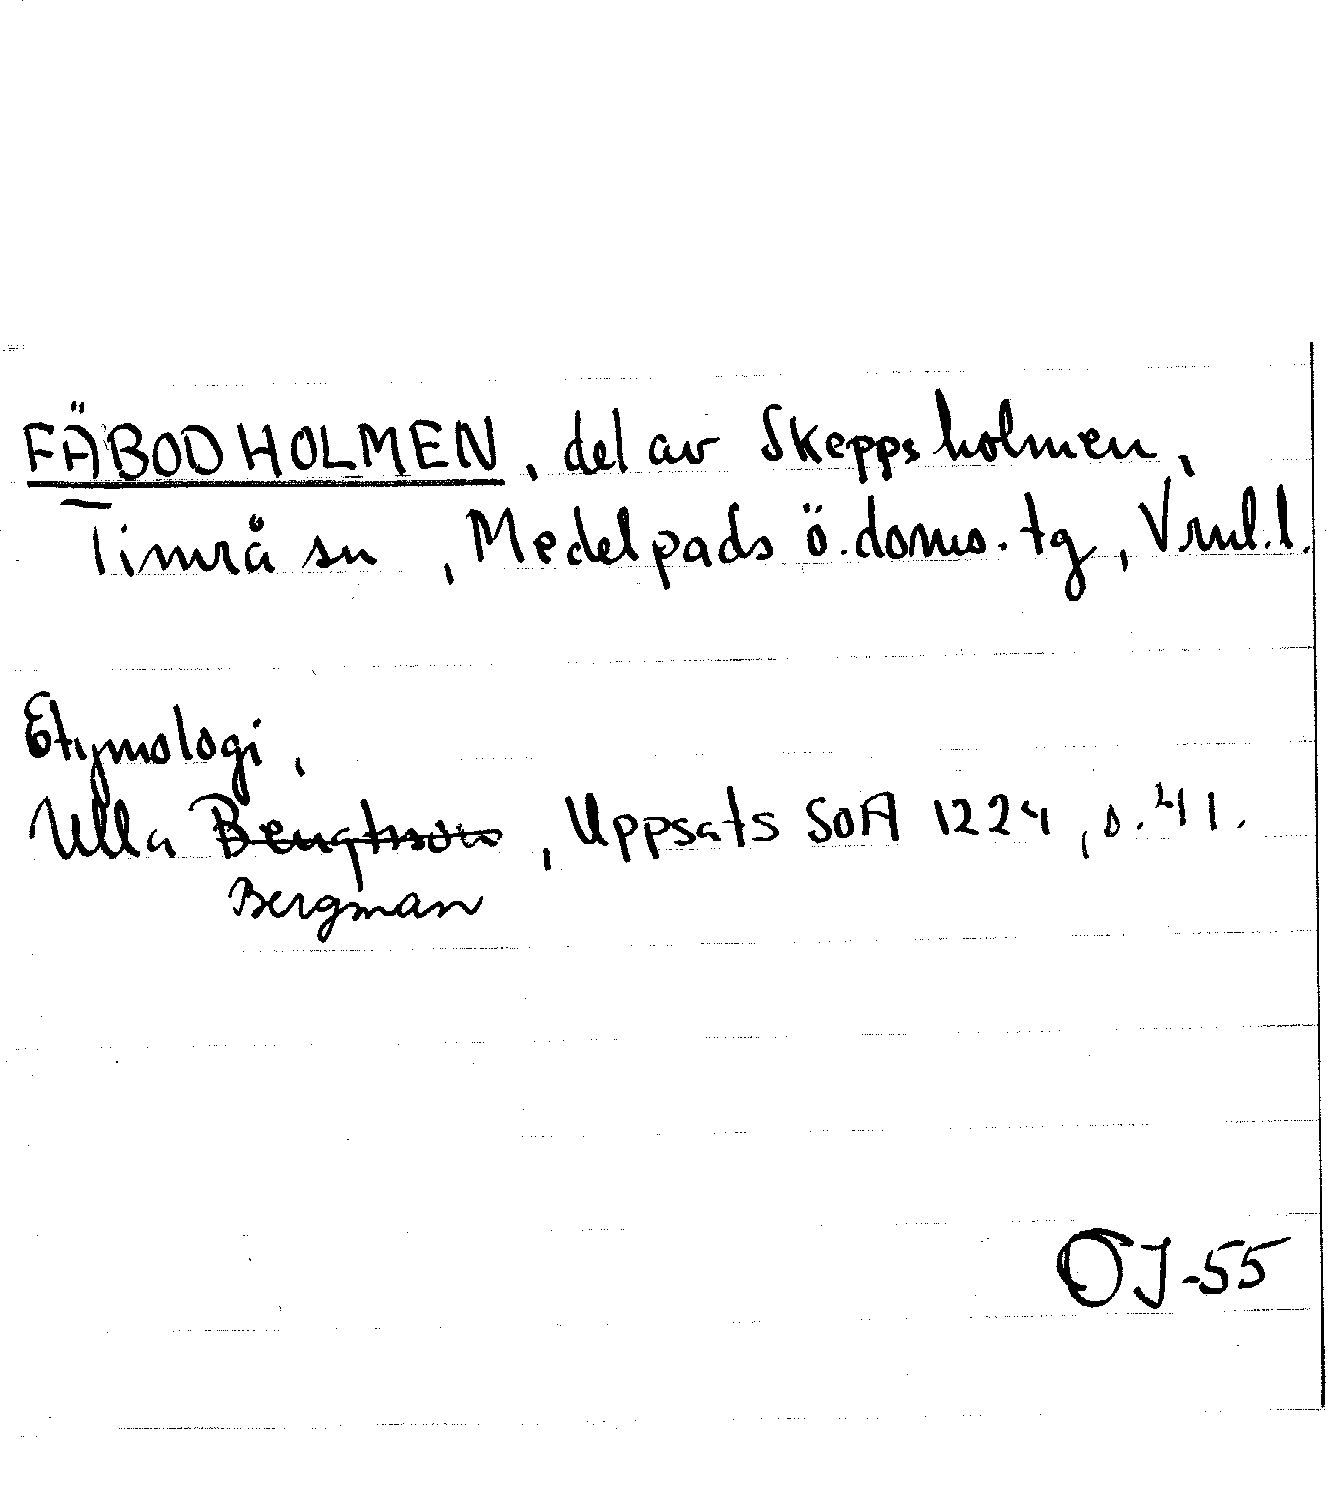 FÄBODHOLMEN, del av Skeppsholmen,
Timrå sn, Medelpads ö. doms. tg, Vrnl.l.
Etymologi,
Ulla Bengtsson, Uppsats SOA 1224, s. 41.
Bergman
OJ-55